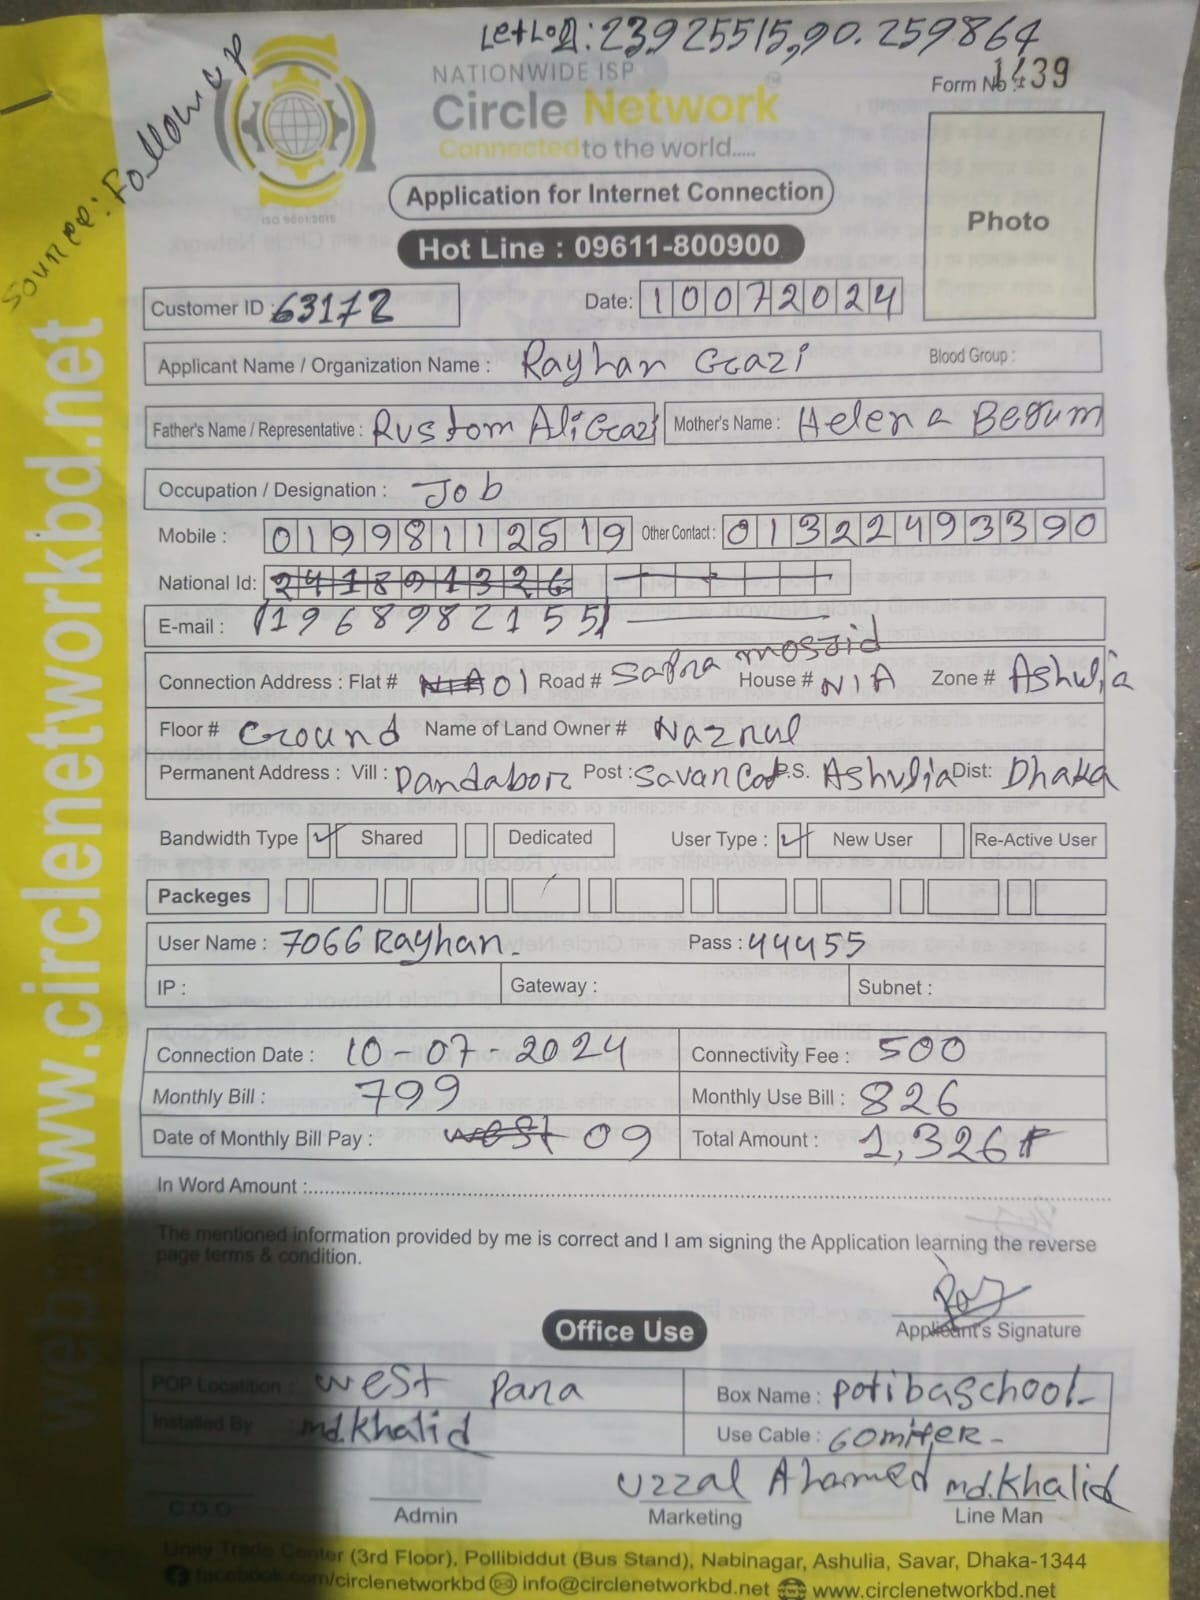 Let Lon: 23.925515,90.259864
Source: Follow up
NATIONWIDE ISP
Circle Network
Connected to the world.....
Form No : 1439
ISO 9001:2015
Application for Internet Connection
Photo
Hot Line : 09611-800900
Customer ID : 63172
Date: 10072024
Applicant Name / Organization Name : Rayhan Gazi
Blood Group :
Father's Name / Representative : Rustom Ali Gazi
Mother's Name : Helena Begum
Occupation / Designation : Job
Mobile : 01998112519
Other Contact : 01322493390
National Id: 241891326
E-mail : (1968982155)
Connection Address : Flat # N/A 01 Road # Sapra mosjid House # N/A Zone # Ashulia
Floor # Ground Name of Land Owner # Nazrul
Permanent Address : Vill : Dandabor Post : Savar Cat P.S. Ashulia Dist: Dhaka
Bandwidth Type Shared Dedicated User Type : New User Re-Active User
Packeges
User Name : 7066Rayhan Pass : 44455
IP : Gateway : Subnet :
Connection Date : 10-07-2024 Connectivity Fee : 500
Monthly Bill : 799 Monthly Use Bill : 826
Date of Monthly Bill Pay : west 09 Total Amount : 1,326
In Word Amount :
The mentioned information provided by me is correct and I am signing the Application learning the reverse
page terms & condition.
Applicant's Signature
Office Use
POP Locatition : West Para Box Name : Potibaschool
Installed By : md.Khalid Use Cable : 60miter
Uzzal Ahamed md.Khalid
C.O.O Admin Marketing Line Man
Unity Trade Center (3rd Floor), Pollibiddut (Bus Stand), Nabinagar, Ashulia, Savar, Dhaka-1344
facebook.com/circlenetworkbd info@circlenetworkbd.net www.circlenetworkbd.net
web: www.circlenetworkbd.net